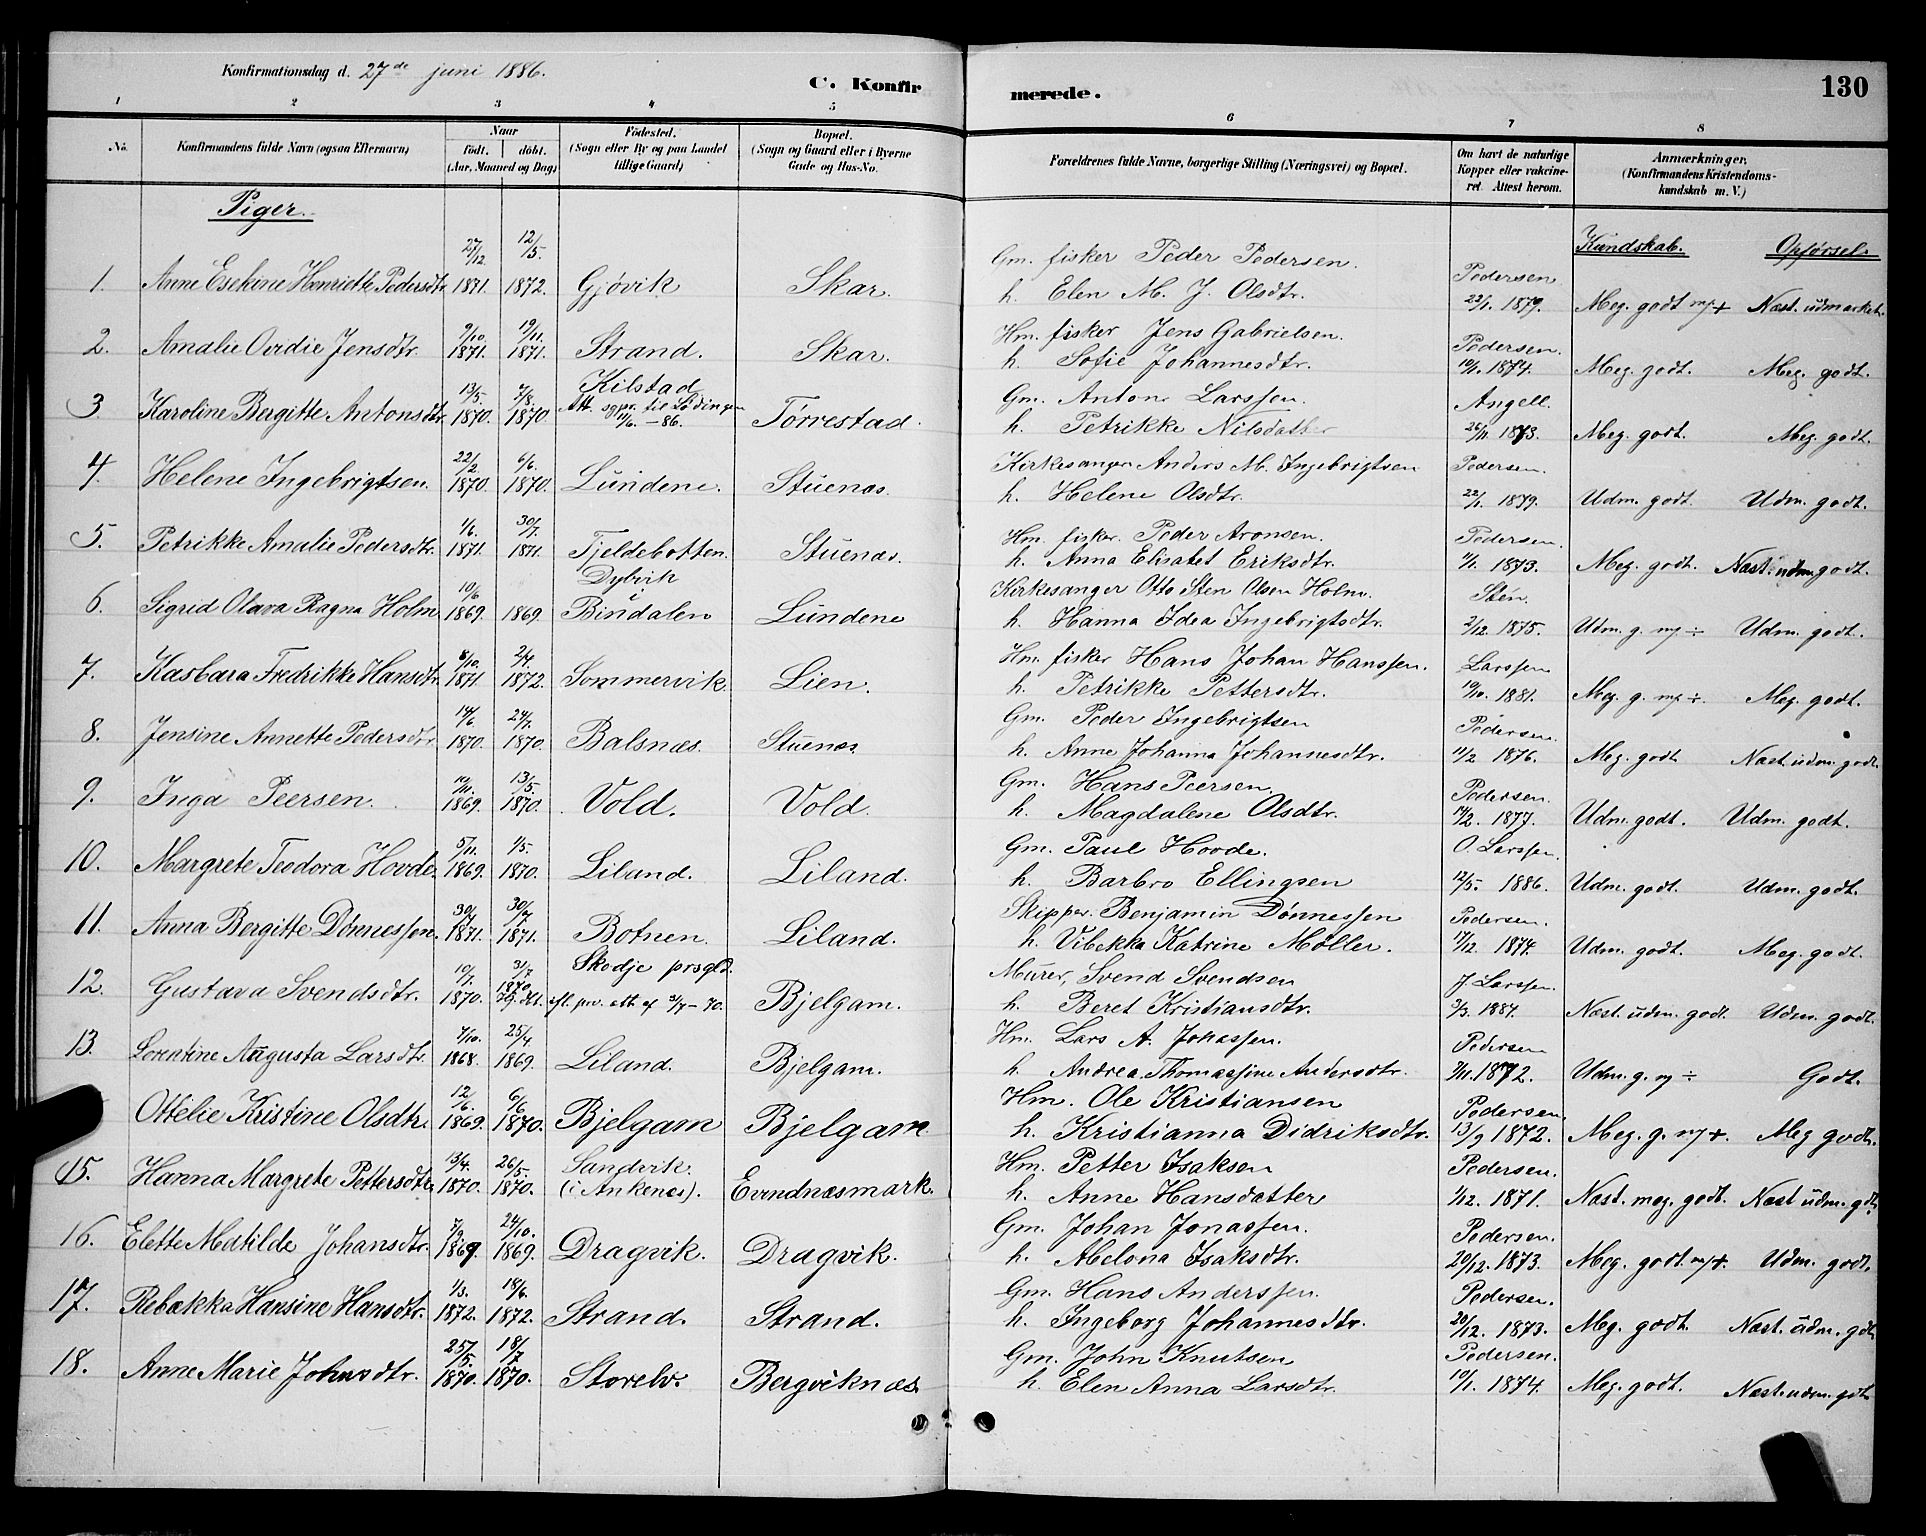 Konfirmationsdag d. 27de juni 1886.
C. Konfirmerede.
130
1 2 3 4 5 6 7 8
No.
Konfirmandens fulde Navn (ogsaa Efternavn)
Naar
födt. döbt.
(Aar, Maaned og Dag)
Födested.
(Sogn eller By og paa Landet
tillige Gaard)
Bopæl.
(Sogn og Gaard eller i Byerne
Gade og Hus-No.
Forældrenes fulde Navne, borgerlige Stilling (Næringsvei) og Bopæl.
Om havt de naturlige
Kopper eller vakcine-
ret. Attest herom.
Anmærkninger.
(Konfirmandens Kristendoms-
kundskab m. V.)
Piger.
Kundskab. Opførsel.
27/12. 12/5. Gm. fisker Peder Pedersen. Pedersen
1. Anne Esekine Henriette Pedersdtr. 1871. 1872. Gjövik Skar. h. Elen M. J. Olsdtr. 23/1. 1879. Meg. godt m/+ Næst. udmærket.
9/10. 19/11. Hm. fisker Jens Gabrielsen. Pedersen.
2. Amalie Ovidie Jensdtr. 1871. 1871. Strand. Skar. h. Sofie Johannesdtr. 10/1. 1874. Meg. godt. Meg. godt.
13/5. 7/8. Kilstad Gm. Anton Larssen. Angell.
3 Karoline Bergitte Antonsdtr. 1870. 1870. Att. sgpr. til Lødingen 11/6. -86. Tørrestad. h. Petrikke Nilsdatter 26/11. 1873. Meg. godt. Meg. godt.
22/2. 6/6. Kirkesanger Anders M. Ingebrigtsen Pedersen.
4. Helene Ingebrigtsen. 1870. 1870. Lundene. Stuenæs. h. Helene Olsdtr. 22/1. 1879. Udm. godt. Udm. godt.
1/6. 30/7. Hm. fisker. Peder Aronsen. Pedersen.
5. Petrikke Amalie Pedersdtr. 1871. 1871. Fjeldebotten. Stuenæs. h. Anna Elisabet Eriksdtr. 11/1. 1873. Meg. godt. Næst. udm. godt.
10/6 Dybvik i Kirkesanger Otto Sten Olsen Holm. Sten.
6. Sigrid Olava Ragna Holm 1869. 1869. Bindalen Lundene h. Hanna Idea Ingebrigtsdtr. 2/12 1875. Udm. g. m/÷ Udm. godt.
8/10. 2/4. Hm. fisker Hans Johan Hanssen. Larssen
7. Kasbara Fredrikke Hansdtr. 1871 1872. Sommervik. Lien. h. Petrikke Pettersdtr. 19/10. 1881. Meg. g. m/÷. Meg. godt.
14/6. 24/7. Gm. Peder Ingebrigtsen Pedersen.
8. Jensine Annette Pedersdtr. 1870. 1870. Balsnæs. Stuenæs h. Anne Johanna Johannesdtr. 11/2 1876. Meg. godt Næst. udm. godt.
13/5. Gm. Hans Peersen. Pedersen.
9. Inga Peersen. 1869. 1870. Vold. Vold. h. Magdalene Olsdtr. 14/2. 1877. Udm. godt. Udm. godt.
5/11. 1/5. Gm. Paul Hovde. O. Larssen.
10. Margrete Teodora Hovde. 1869. 1870. Liland. Liland. h. Barbro Ellingsen 12/5. 1886. Udm. godt. Udm. godt.
30/1 30/7 Skipper. Benjamin Dønnessen Pedersen.
11. Anna Bergitte Dønnessen. 1871. 1871. Botnen. Liland. h. Vibekka Katrine Møller. 17/12 1874. Udm. godt. Meg. godt.
10/7. 31/7 1870. Skodje prsgld. Murer, Svend Svendsen J. Larssen.
12. Gustava Svendsdtr. 1870. fl. prv. att af 31/7-70. Bjelgam. h. Beret Kristiansdtr. 3/3. 1884. Næst. udm. godt. Udm. godt.
7/10. 25/4. Hm. Lars A. Johassen. Pedersen
13. Lorentine Augusta Larsdtr. 1868. 1869. Liland. Bjelgam. h. Andrea Thomassine Andersdtr. 2/11. 1872. Udm. g. m/÷ Godt.
12/6. 6/6 Hm. Ole Kristiansen Pedersen.
Ottelie Kristine Olsdtr. 1869. 1870. Bjelgam Bjelgam. h. Kristianna Didriksdtr. 13/9 1872. Meg. g. m/+. Meg godt.
13/4. 26/5. Sandvik. Hm. Petter Isaksen Pedersen.
15. Hanna Margrete Pettersdtr. 1870. 1870. (i Ankenes). Evindnæsmark. h. Anne Hansdatter 1/12. 1871. Næst. meg. godt. Næst udm. gdt.
7/9. 24/10. Gm. Johan Jonassen. Pedersen.
16. Elette Matilde Johansdtr. 1869 1869. Dragvik. Dragvik. h. Abelona Isaksdtr. 20/12. 1873. Meg. godt. m/+. Udm. godt.
1/3. 18/6. Gm. Hans Anderssen. Pedersen.
17. Rebækka Hansine Hansdtr. 1872. 1872. Strand. Strand. h. Ingeborg Johannesdtr. 20/12. 1873. Meg. godt. Næst. udm. gdt
25/5. 18/7 Gm. John Knutsen Pedersen.
18. Anne Marie Johnsdtr. 1870. 1870. Storelv. Bergviknæs h. Elen Anna Larsdtr. 10/1. 1874. Meg. godt. Næst. udm. gdt